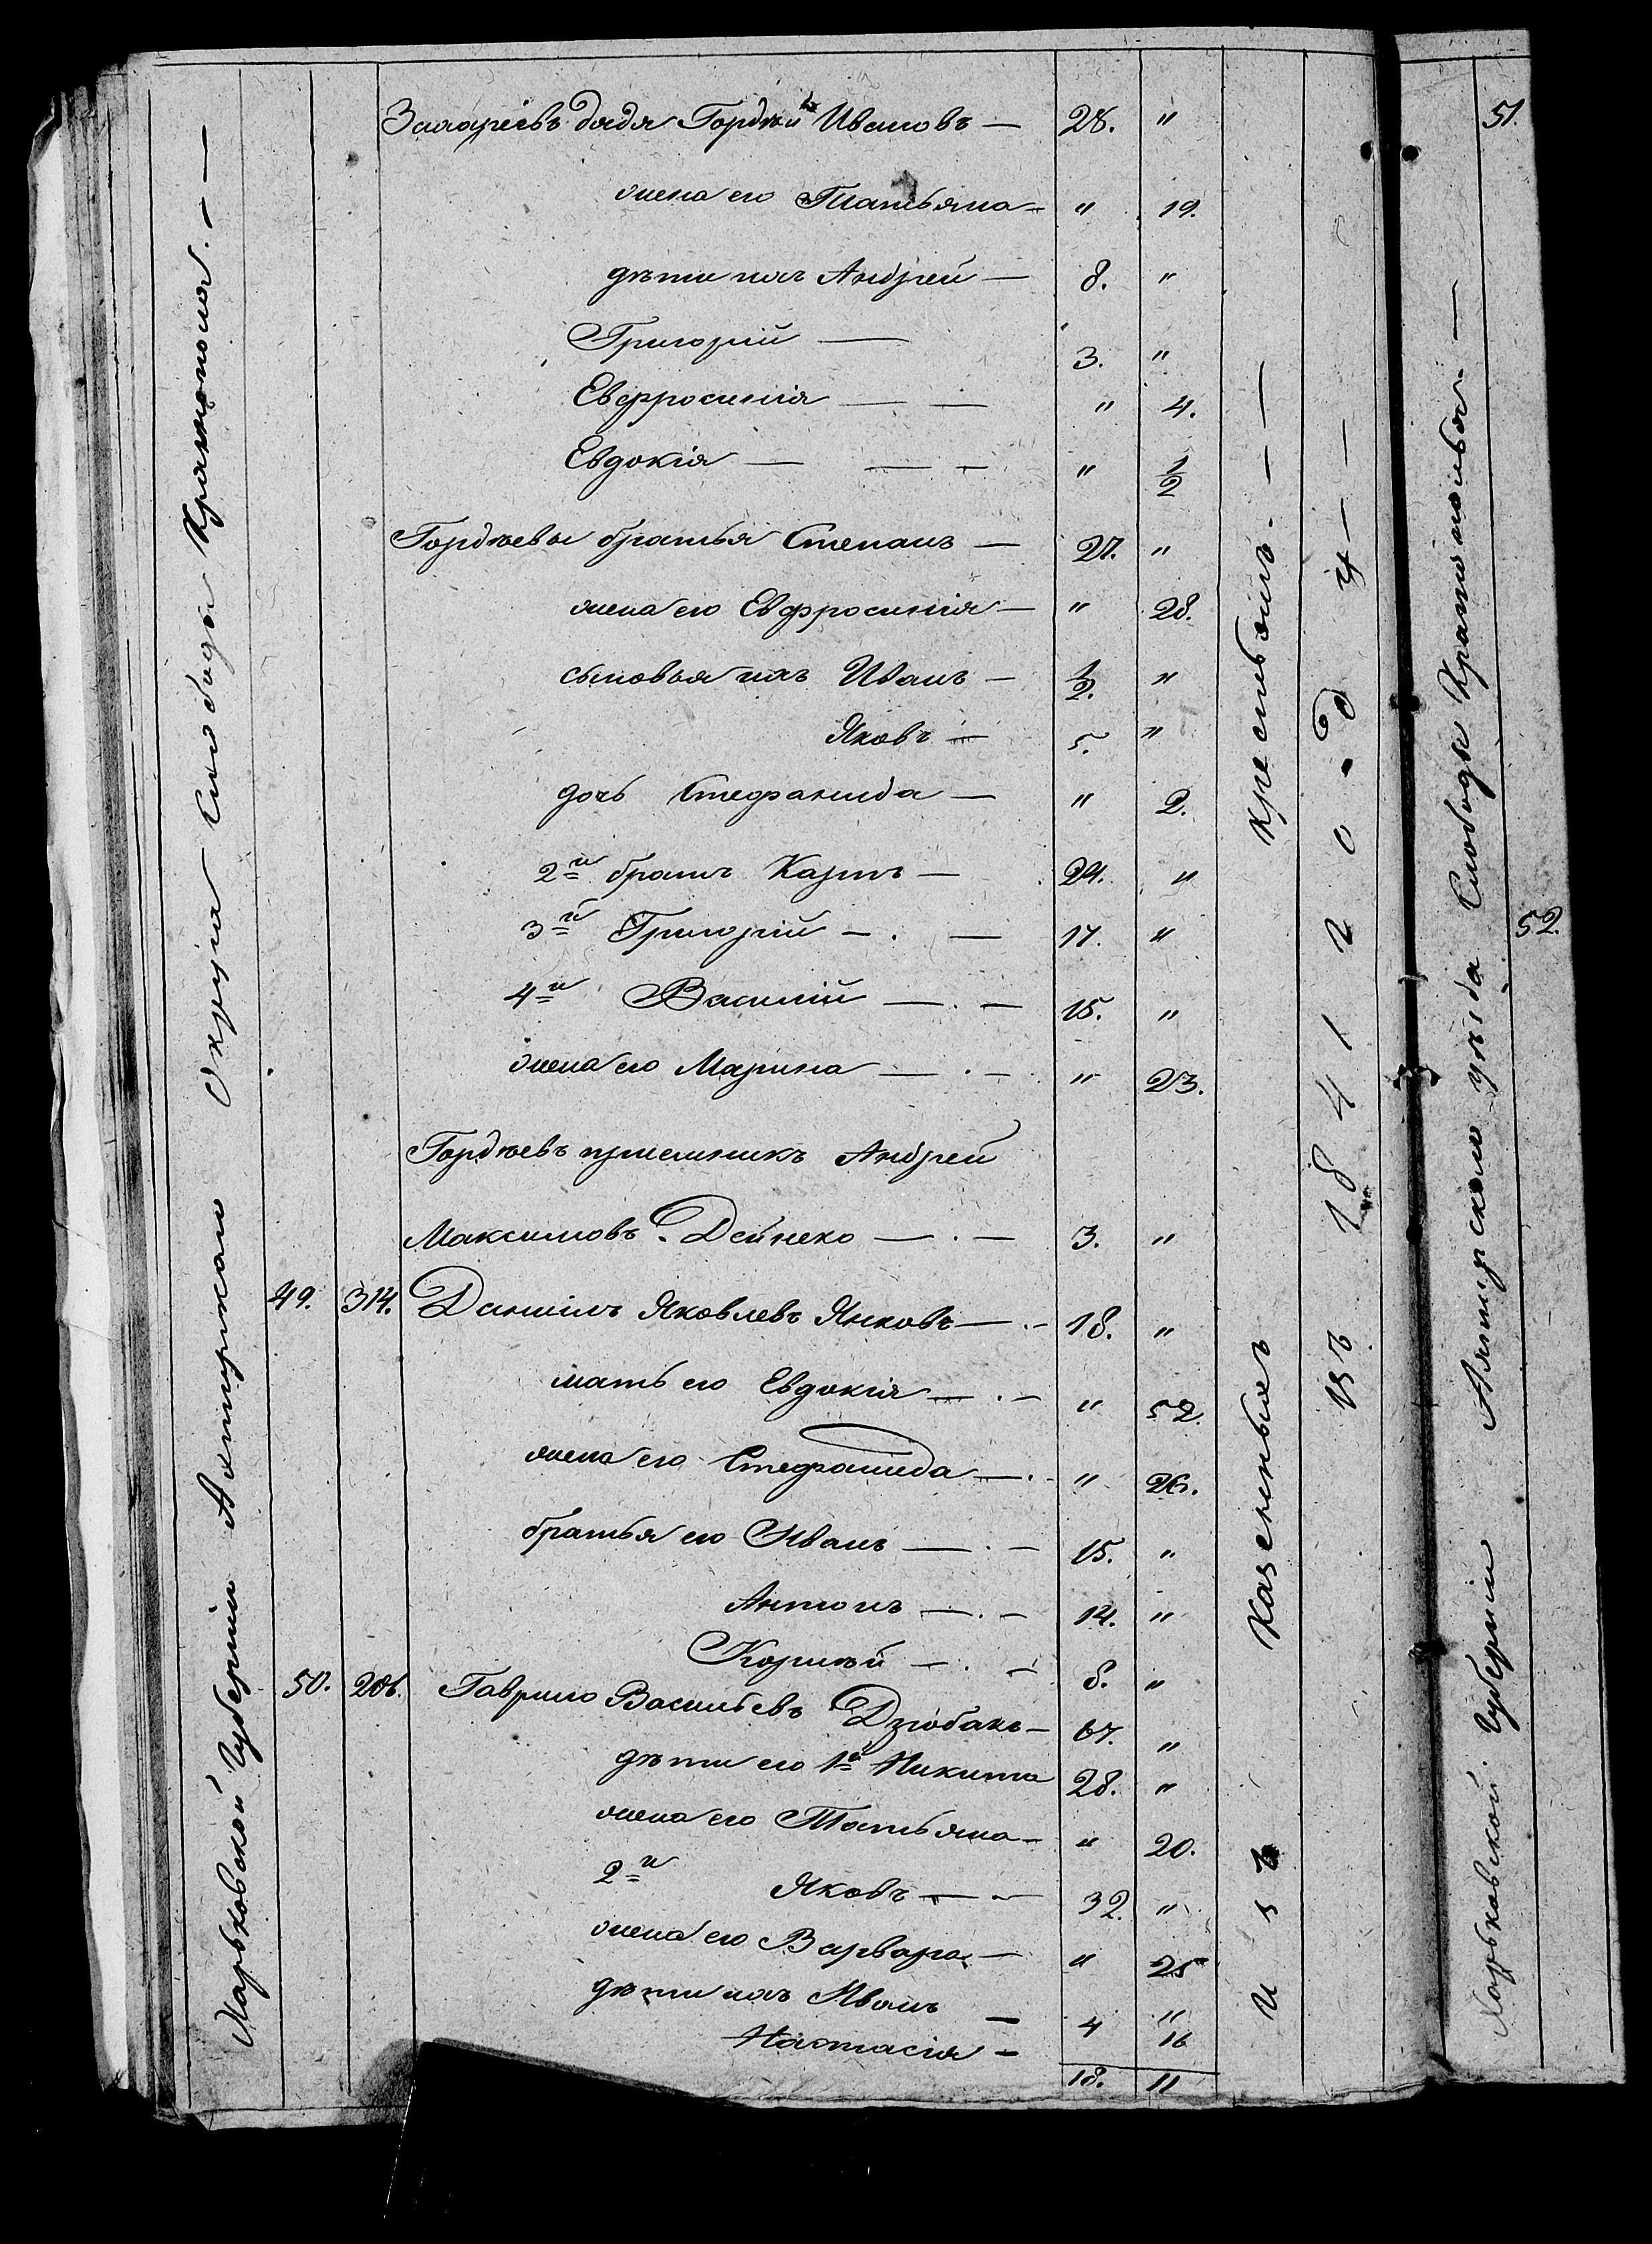 Харьковской Губерніи Ахтырскаго Округа Слободы Краснополья. —
Захаріевъ дядя Гордѣй Ивановъ — 28. "
жена его Татьяна — " 19.
дѣти ихъ Андрей — 8. "
Григорій — 3. "
Евфросинія — — " 4.
Евдокія — — — " 1/2
Гордѣевы братья Степанъ — 27. "
жена его Евфросинія — " 28.
сыновья ихъ Иванъ — 1/2. "
Яковъ — 5. "
дочь Стефанида — " 2.
2й братъ Карпъ — 24. "
3й Григорій — . — 17. "
4й Василій — . — 15. "
жена его Марина — . — " 23.
Гордѣевъ пріемникъ Андрей
Максимовъ Дейнеко — . — 3. "
49. 314. Даніилъ Яковлевъ Янковъ — . — 18. "
мать его Евдокія — . — " 52.
жена его Стефанида — . — " 26.
братья его Иванъ — . — 15. "
Антонъ — . — 14. "
Корнѣй — . — 8. "
50. 206. Гаврило Васильевъ Дзюбакъ — 67. "
дѣти его 1й Никита 28. "
жена его Татьяна — " 20.
2й Яковъ — — 32. "
жена его Варвара — " 25
дѣти ихъ Иванъ — 4 "
Настасія — 16
18. 11
Изъ Казенныхъ крестьянъ. — —
въ 1841 год у — —
Харьковской Губерніи Ахтырскаго уѣзда Слободы Краснополья —
51.
52.